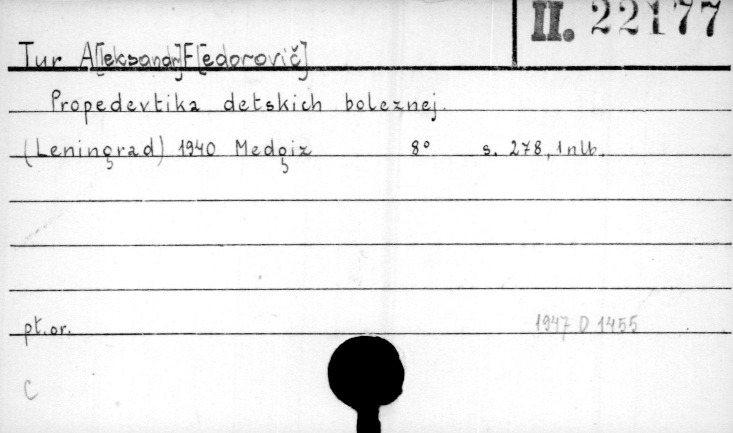 II. 22177
Tur A[leksandr] F[edorovič]
Propedevtika detskich boleznej.
(Leningrad) 1940 Medgiz 8° s. 278, 1 nlb.
pt. or. 1947 D 1455
C